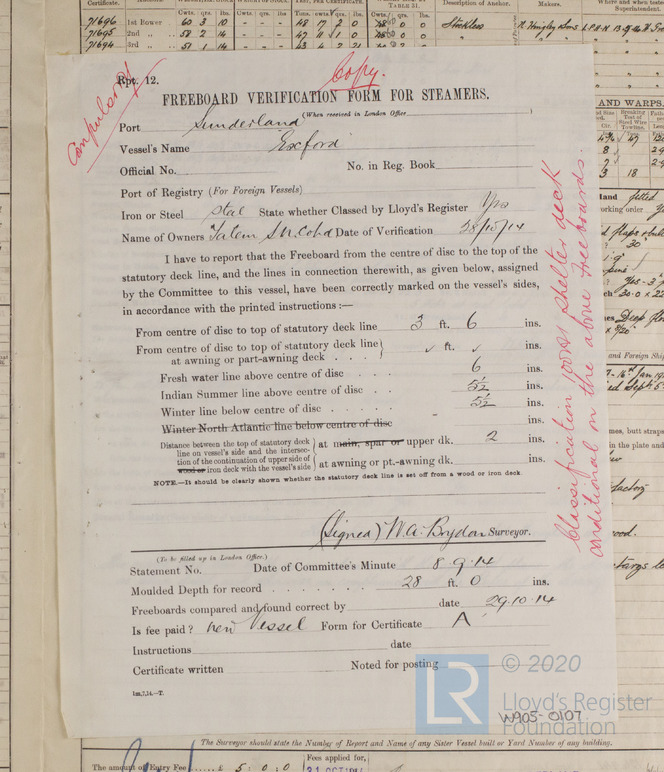 Certificate.
71696 1st Bower 60 3 10 - - - 48 17 2 0 Stockless
71695 2nd „ 58 2 16 - - - 47 11 1 0
71694 3rd „ 51 1 14
Description of Anchor.
Makers.
Superintendent.
Rpt. 12.
Copy.
Compulsory
FREEBOARD VERIFICATION FORM FOR STEAMERS.
(When received in London Office
Port Sunderland
Vessel's Name Exford
Official No. No. in Reg. Book
Port of Registry (For Foreign Vessels)
Iron or Steel Steel State whether Classed by Lloyd's Register Yes
Name of Owners Tatem S.N. Co Ld Date of Verification 28/10/14
I have to report that the Freeboard from the centre of disc to the top of the
statutory deck line, and the lines in connection therewith, as given below, assigned
by the Committee to this vessel, have been correctly marked on the vessel's sides,
in accordance with the printed instructions :—
From centre of disc to top of statutory deck line 3 ft. 6 ins.
From centre of disc to top of statutory deck line
at awning or part-awning deck . . . ✓ ft. ✓ ins.
Fresh water line above centre of disc . . . 6 ins.
Indian Summer line above centre of disc . 5½ ins.
Winter line below centre of disc . . . . 5½ ins.
Winter North Atlantic line below centre of disc - ins.
Distance between the top of statutory deck
line on vessel's side and the intersec-
tion of the continuation of upper side of
wood or iron deck with the vessel's side
at main, spar or upper dk. 2 ins.
at awning or pt.-awning dk. ins.
NOTE.—It should be clearly shown whether the statutory deck line is set off from a wood or iron deck
(Signed) W.A. Brydon Surveyor.
(To be filled up in London Office.)
Statement No. Date of Committee's Minute 8.9.14
Moulded Depth for record . . . . . . . 28 ft. 0 ins.
Freeboards compared and found correct by date 29.10.14
Is fee paid? new Vessel Form for Certificate A
Instructions date
Certificate written Noted for posting
1m,7,14.—T.
Classification 100A1 shelter deck
conditional on the above freeboards.
AND WARPS.
LR © 2020
Lloyd's Register
Foundation
W905-0107
The Surveyor should state the Number of Report and Name of any Sister Vessel built or Yard Number of any building.
The amount of Entry Fee £ 5 : 0 : 0
Fees applied for,